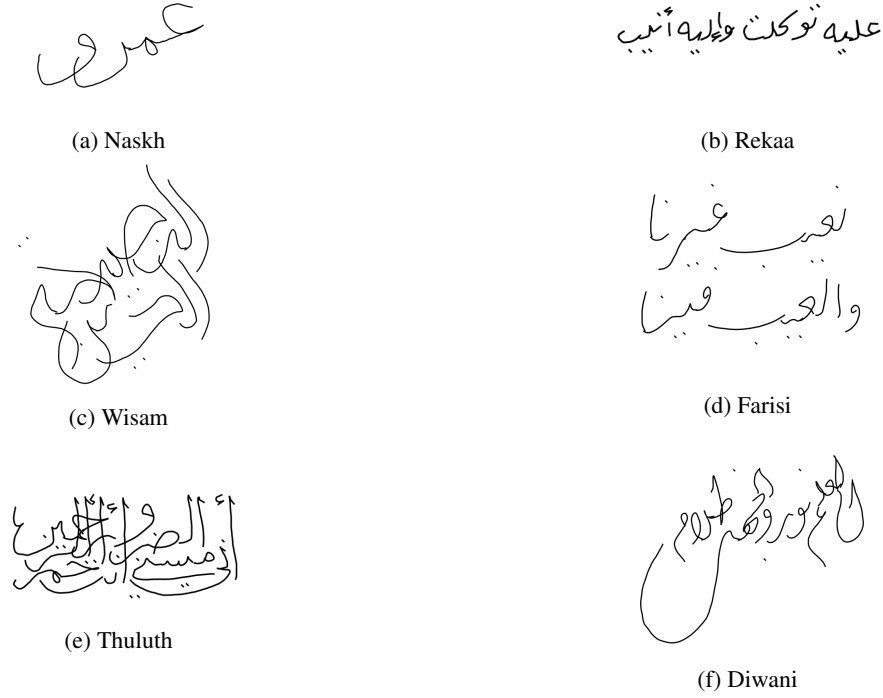 عمرو
(a) Naskh
عليه توكلت وإليه أنيب
(b) Rekaa
(c) Wisam
نعيب غيرنا
والعيب فينا
(d) Farisi
أني مسني الضر وأنت أرحم الراحمين
(e) Thuluth
العلم نور والجهل ظلام
(f) Diwani